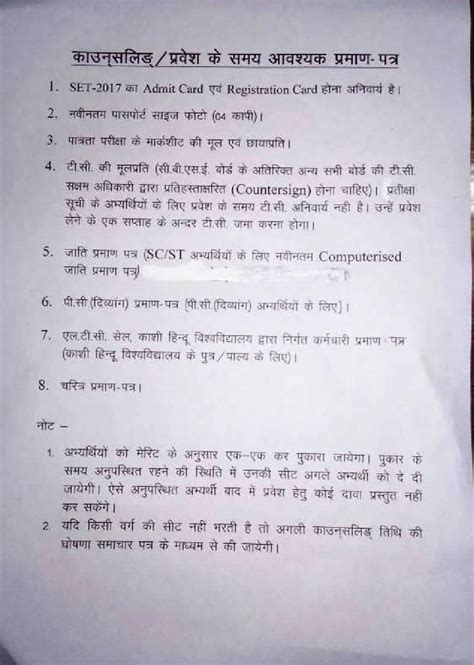 काउन्सलिङ्/प्रवेश के समय आवश्यक प्रमाण-पत्र
1. SET-2017 का Admit Card एवं Registration Card होना अनिवार्य है।
2. नवीनतम पासपोर्ट साइज फोटो (04 कापी)।
3. पात्रता परीक्षा के मार्कशीट की मूल एवं छायाप्रति।
4. टी.सी. की मूलप्रति (सी.बी.एस.ई. बोर्ड के अतिरिक्त अन्य सभी बोर्ड की टी.सी.
सक्षम अधिकारी द्वारा प्रतिहस्ताक्षरित (Countersign) होना चाहिए)। प्रतीक्षा
सूची के अभ्यर्थियों के लिए प्रवेश के समय टी.सी. अनिवार्य नही है। उन्हें प्रवेश
लेने के एक सप्ताह के अन्दर टी.सी. जमा करना होगा।
5. जाति प्रमाण पत्र (SC/ST अभ्यर्थियों के लिए नवीनतम Computerised
जाति प्रमाण पत्र)
6. पी.सी.(दिव्यांग) प्रमाण-पत्र [पी.सी.(दिव्यांग) अभ्यर्थियों के लिए]।
7. एल.टी.सी. सेल, काशी हिन्दू विश्वविद्यालय द्वारा निर्गत कर्मचारी प्रमाण-पत्र
(काशी हिन्दू विश्वविद्यालय के पुत्र/पाल्य के लिए)।
8. चरित्र प्रमाण-पत्र।
नोट –
1. अभ्यर्थियों को मेरिट के अनुसार एक–एक कर पुकारा जायेगा। पुकार के
समय अनुपस्थित रहने की स्थिति में उनकी सीट अगले अभ्यर्थी को दे दी
जायेगी। ऐसे अनुपस्थित अभ्यर्थी बाद में प्रवेश हेतु कोई दावा प्रस्तुत नहीं
कर सकेंगे।
2. यदि किसी वर्ग की सीट नहीं भरती है तो अगली काउन्सलिङ् तिथि की
घोषणा समाचार पत्र के माध्यम से की जायेगी।